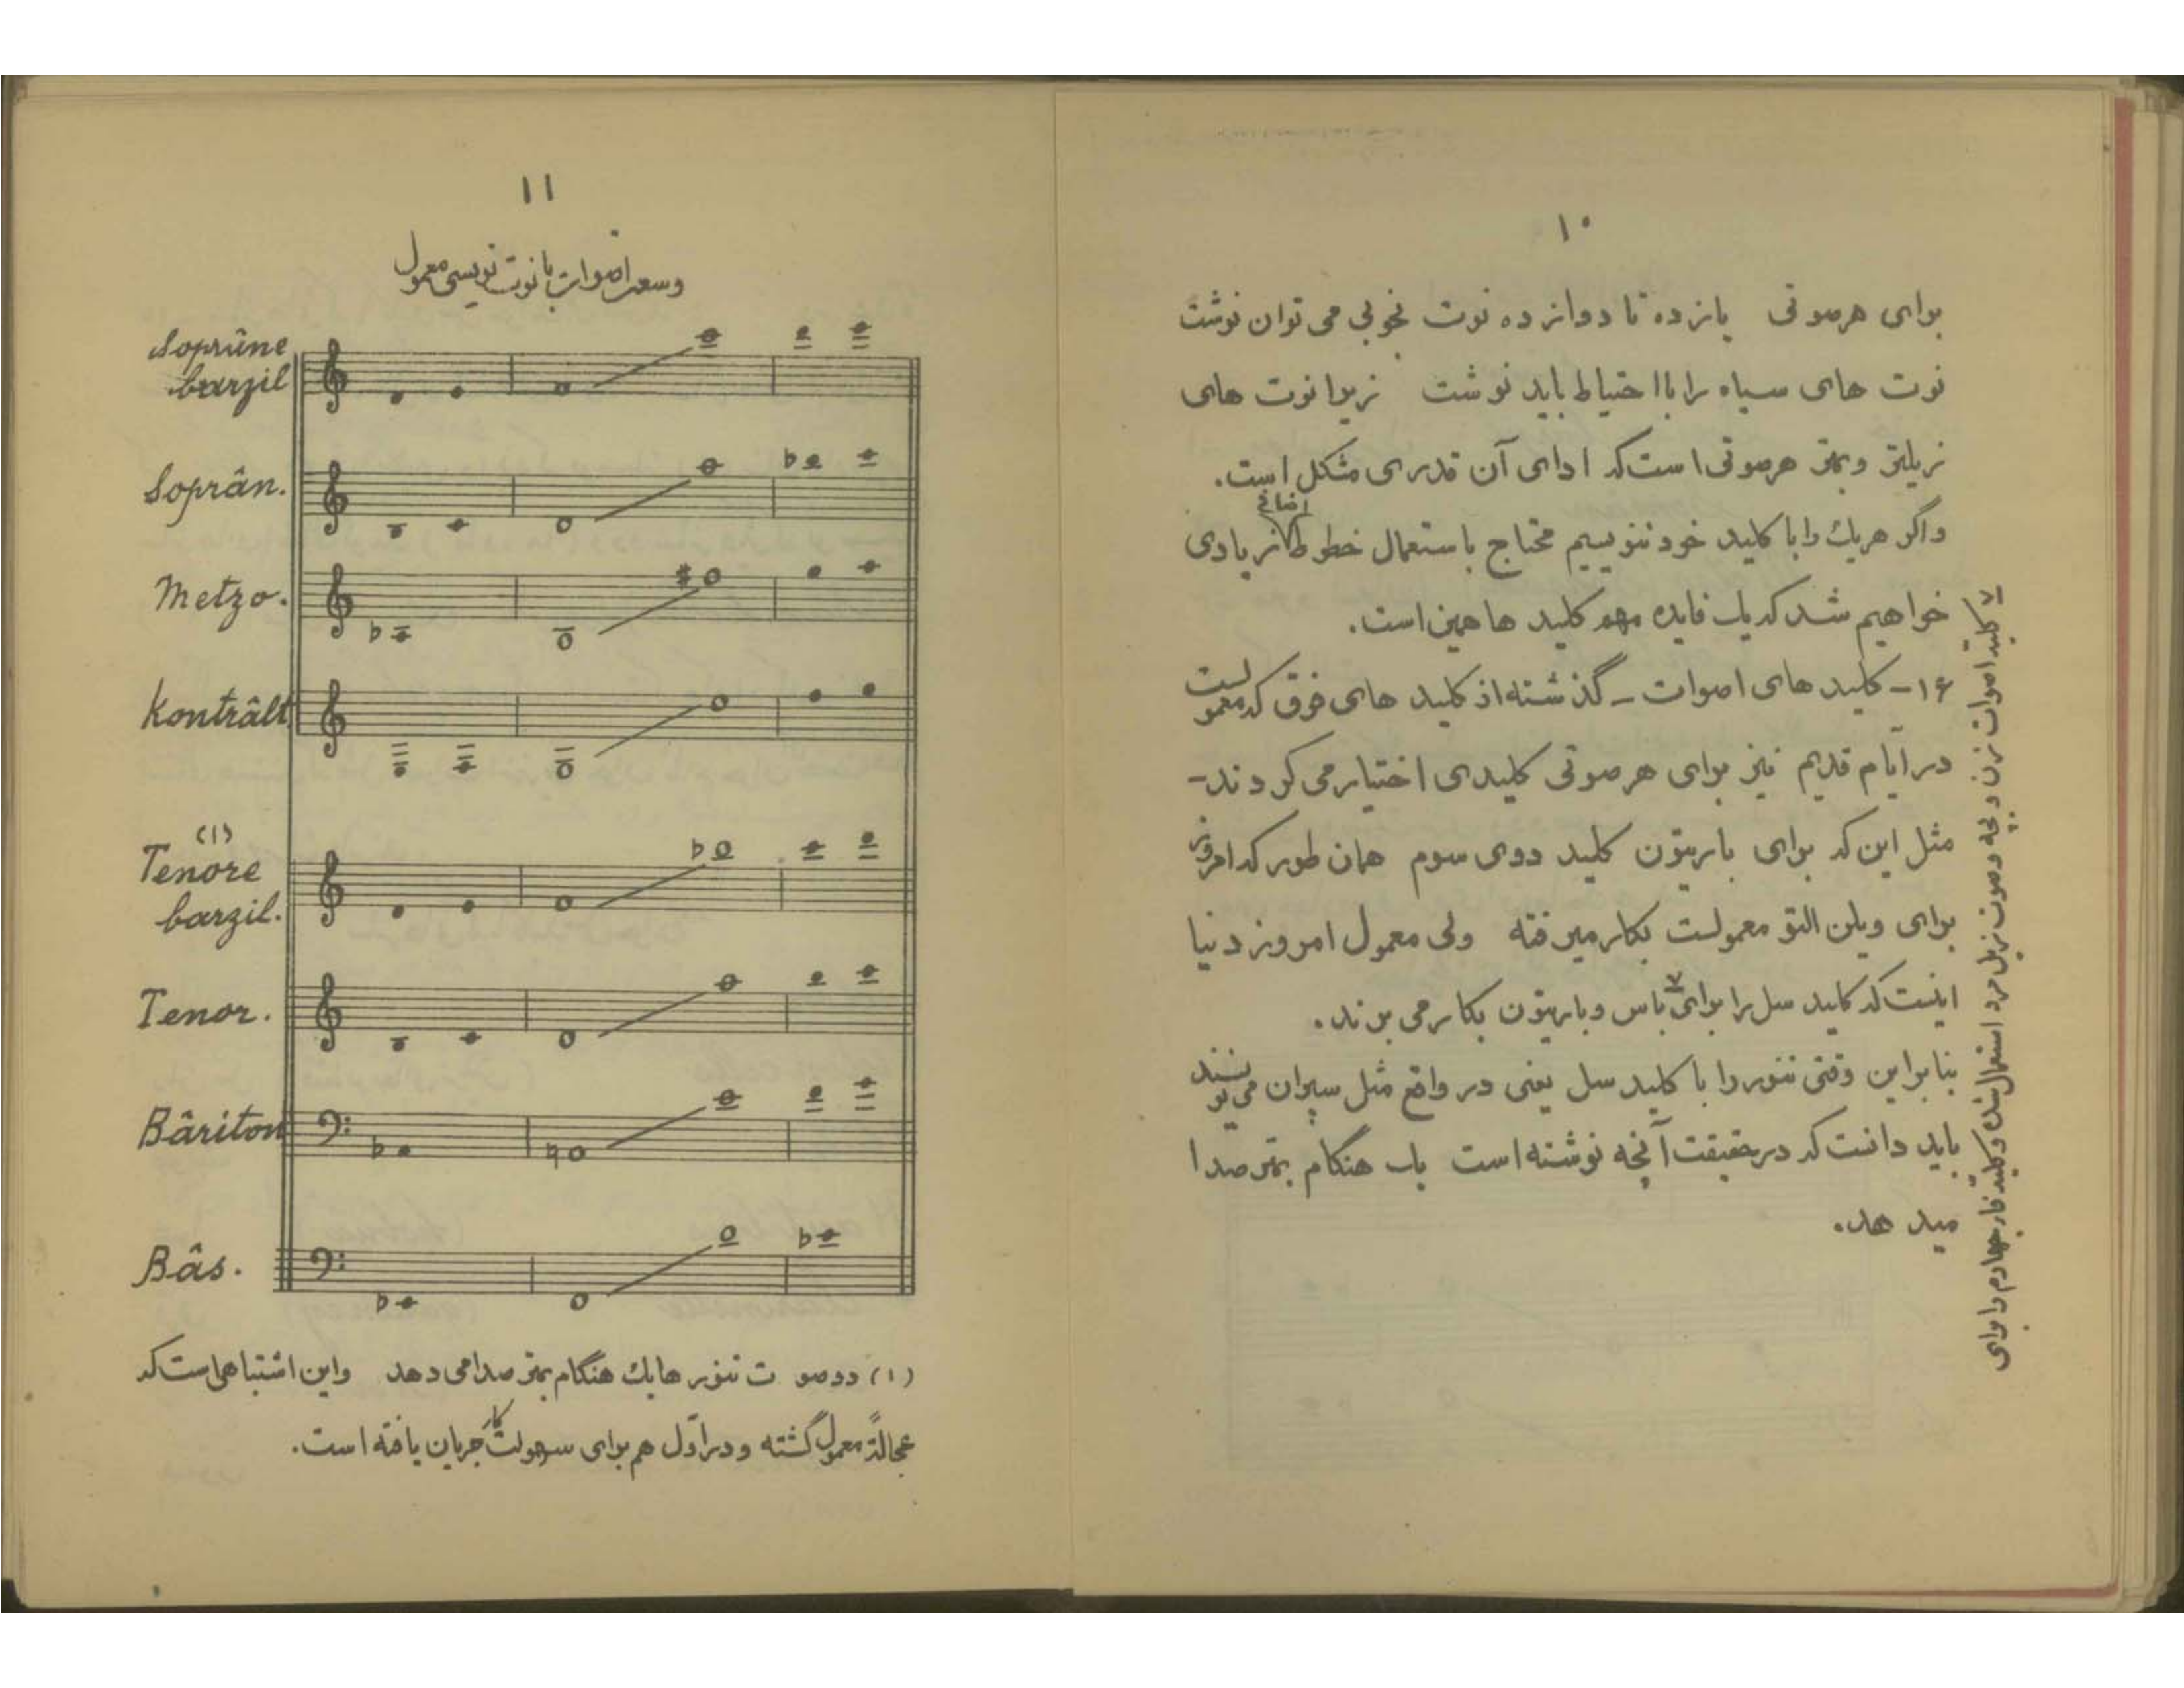 ۱۰
برای هرصوتی یازده تا دوازده نوت بخوبی می توان نوشت
نوت های سیاه را بااحتیاط باید نوشت زیرا نوت های
زیلتر و بمتر هرصوتی است که ادای آن قدری مشکل است.
واگر هریک را با کلید خود ننویسیم محتاج باستعمال خطوط اضافهٔ زیادی
خواهیم شد که یک فایده مهم کلید ها همین است.
۱۶- کلید های اصوات - گذشته از کلید های فوق که معمولست
در ایام قدیم نیز برای هر صوتی کلیدی اختیار می کردند-
مثل این که برای باریتون کلید دوی سوم همان طور که امروز
برای ویلن التو معمولست بکار میرفته ولی معمول امروز دنیا
اینست که کلید سل را برای ۷ باس و باریتون بکار می برند.
بنابراین وقتی تنور را با کلید سل یعنی در واقع مثل سپران می نویسند
باید دانست که در حقیقت آنچه نوشته است یک هنگام بمتر صدا
میدهد.
۷ کلید اصوات زن و بچه و صوت زیل مرد استعمال شده و کلید فا ر چهارم را برای
۱۱
وسعت اصوات با نوت نویسی معمول
Soprûne
barzil
Soprân.
Metzo.
Kontrâlt
(۱)
Tenore
barzil.
Tenor.
Bâriton
Bâs.
(۱) دوصو ت تنور ها یک هنگام بمتر صدا می دهد واین اشتباهی است که
عجالةً معمول گشته و در اول هم برای سهولت کار جریان یافته است.